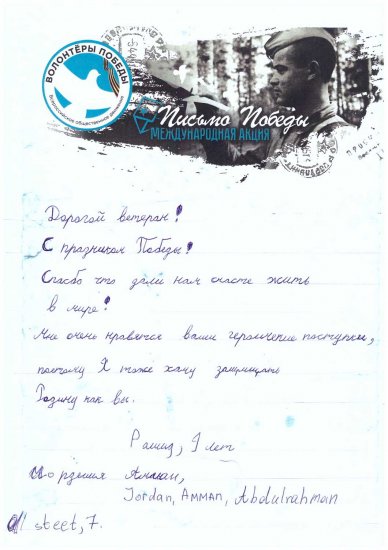 ВОЛОНТЁРЫ ПОБЕДЫ
Всероссийское общественное движение
Письмо Победы
МЕЖДУНАРОДНАЯ АКЦИЯ
Дорогой ветеран!
С празником Победы!
Спасбо что дали нам счасте жить
в мире!
Мне очень нравятся ваши героические поступки,
поетому Я тоже хачу защищать
Родину как вы.
9 лет
Амман,
Jordan, Амман, Abdulrahman
steet, 7.